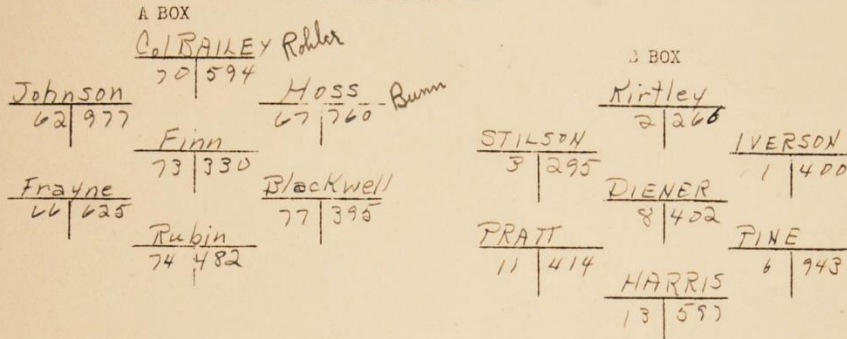 A BOX
Col BAILEY Rohler
70 594
Johnson
62 977
Hoss Bunn
67 760
Finn
73 330
Frayne
66 625
Blackwell
77 395
Rubin
74 482
B BOX
Kirtley
2 266
STILSON
3 295
IVERSON
1 400
DIENER
8 402
PRATT
11 414
PINE
6 943
HARRIS
13 597